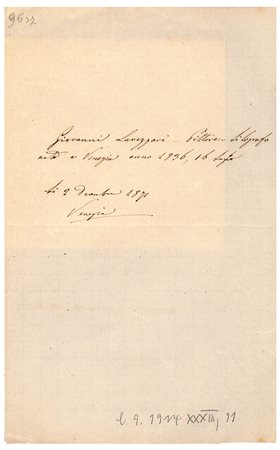 9627
Giovanni Lavezzari - Pittore - Silografo
nato a Venezia anno 1836, 16 luglio
li 2 Dicembre 1871
Venezia
l. S. 1914 XXXIII, 11